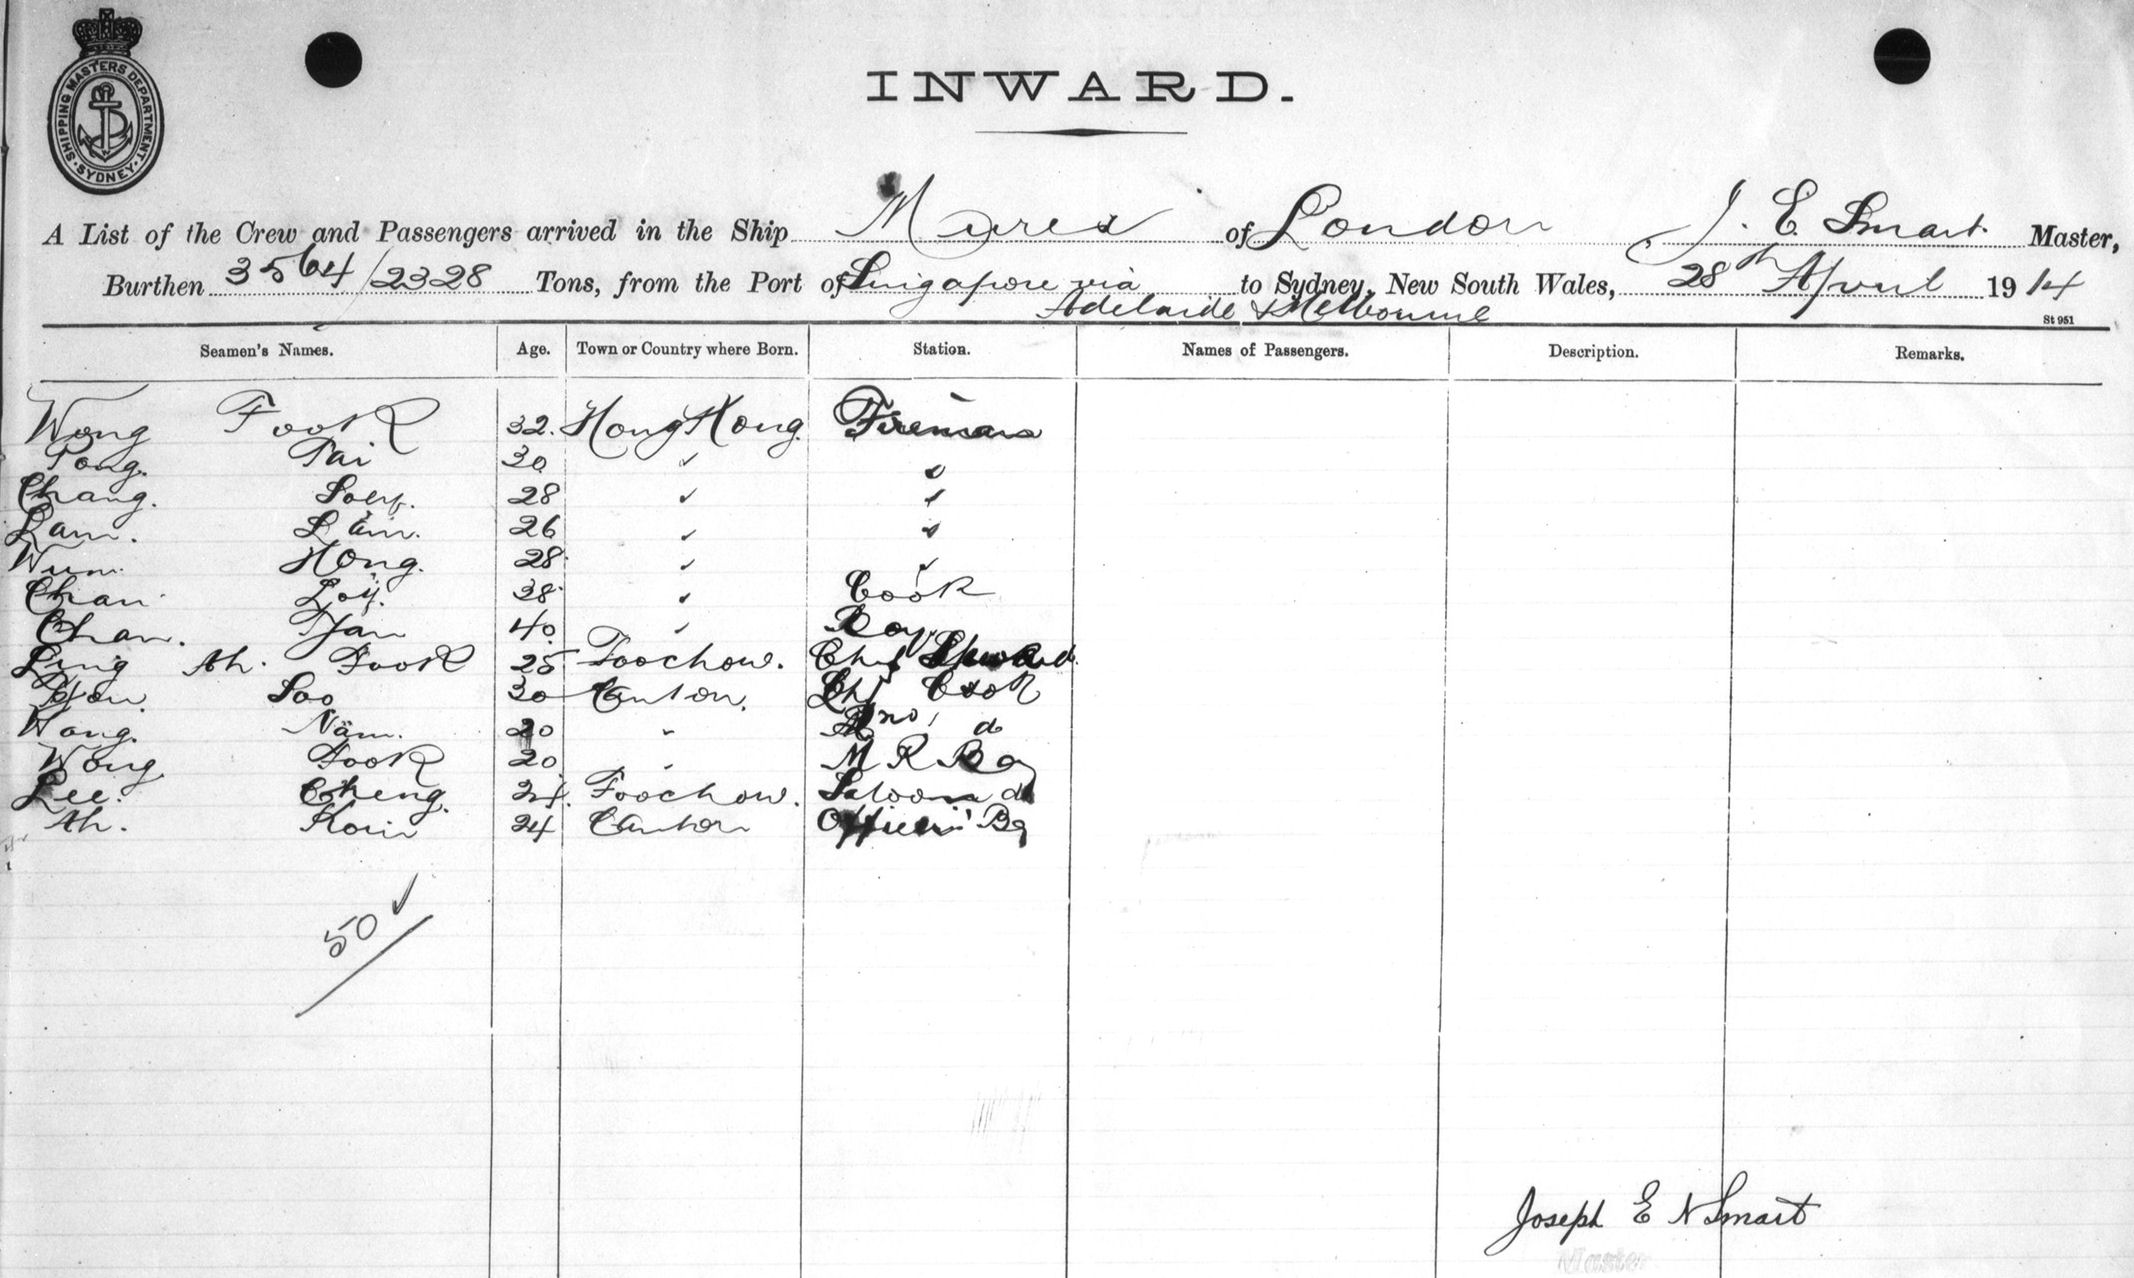 SHIPPING MASTERS DEPARTMENT
SYDNEY
INWARD.
A List of the Crew and Passengers arrived in the Ship Murex of London J. E. Smart Master,
Burthen 3564/2328 Tons, from the Port of Singapore via to Sydney, New South Wales, 28th April 1914
Adelaide & Melbourne
St 951
Seamen's Names. Age. Town or Country where Born. Station. Names of Passengers. Description. Remarks.
Wong Fook 32. Hong Kong Fireman
Pong. Tai 30 " "
Chang. 28 " "
Lam. Lam. 26 " "
Wum. Hong. 28 " "
Chan Loy. 38 " Cook
Chan. 40 " Boy
Ling Ah. Fook 25 Foochow. Chief Steward
Soo 30 Canton. Chf Cook
Wong. Nam. 20 " 2nd do
Wong Fook 20 " M R Boy
Lee. Cheng. 24. Foochow. Saloon do
Ah. 24 Canton Officers' Boy
50 ✓
Joseph E N Smart
Master